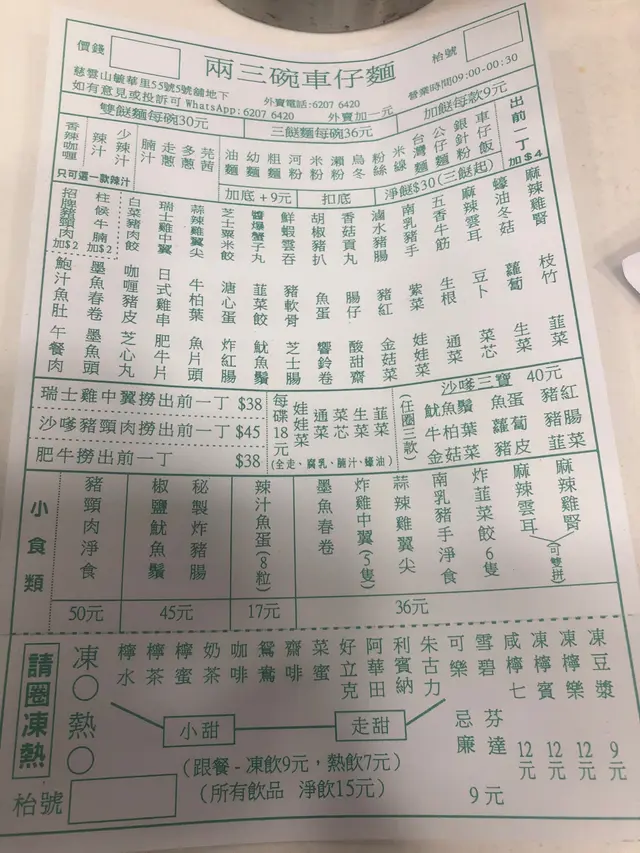 價錢
兩三碗車仔麵
枱號
慈雲山毓華里55號5號舖地下
如有意見或投訴可WhatsApp:6207 6420
外賣電話:6207 6420
外賣加一元
營業時間09:00-00:30
雙餸麵每碗30元
三餸麵每碗36元
加餸每款9元
香辣咖喱
辣汁
少辣汁
只可選一款辣汁
腩汁
走蔥
多蔥
芫茜
油麵
幼麵
粗麵
河粉
米粉
瀨粉
烏冬
粉絲
米線
台灣麵
公仔麵
銀針粉
車仔飯
出前一丁 加$4
加底+9元
扣底
淨餸$30(三餸起)
招牌豬頸肉 加$2
柱侯牛腩 加$2
白菜豬肉餃
瑞士雞中翼
蒜辣雞翼尖
芝士粟米餃
醬爆蟹子丸
鮮蝦雲吞
胡椒豬扒
香菇貢丸
滷水豬腸
南乳豬手
五香牛筋
麻辣雲耳
蠔油冬菇
麻辣雞腎
鮑汁魚肚
墨魚春卷
咖喱豬皮
日式雞串
牛柏葉
溏心蛋
韮菜餃
豬軟骨
魚蛋
腸仔
豬紅
紫菜
生根
豆卜
蘿蔔
枝竹
午餐肉
墨魚頭
芝心丸
肥牛片
魚片頭
炸紅腸
魷魚鬚
芝士腸
響鈴卷
酸甜齋
金菇菜
娃娃菜
通菜
菜芯
生菜
韮菜
瑞士雞中翼撈出前一丁 $38
沙嗲豬頸肉撈出前一丁 $45
肥牛撈出前一丁 $38
每碟18元
娃娃菜
通菜
菜芯
生菜
韮菜
(全走、腐乳、腩汁、蠔油)
沙嗲三寶 40元
(任圈三款)
魷魚鬚 魚蛋 豬紅
牛柏葉 蘿蔔 豬腸
金菇菜 豬皮 韮菜
小食類
豬頸肉淨食
50元
椒鹽魷魚鬚
秘製炸豬腸
45元
辣汁魚蛋(8粒)
17元
墨魚春卷
炸雞中翼(5隻)
蒜辣雞翼尖
南乳豬手淨食
炸韮菜餃6隻
麻辣雲耳
麻辣雞腎
(可雙拼)
36元
請圈凍熱
凍
熱
檸水
檸茶
檸蜜
奶茶
咖啡
鴛鴦
齋啡
菜蜜
好立克
阿華田
利賓納
朱古力
可樂
雪碧
忌廉
芬達
9元
咸檸七 12元
凍檸賓 12元
凍檸樂 12元
凍豆漿 9元
小甜
走甜
(跟餐 - 凍飲9元，熱飲7元)
(所有飲品 淨飲15元)
枱號